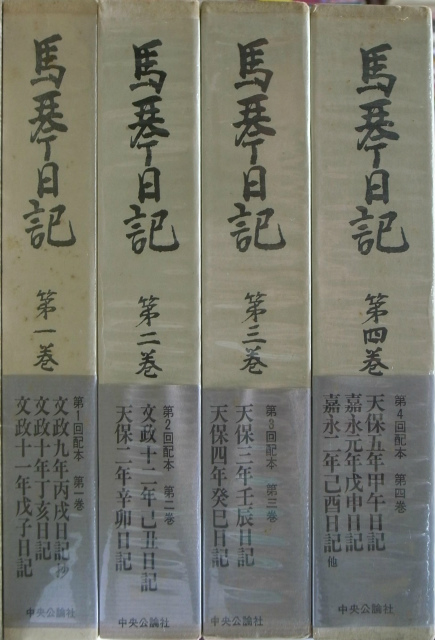 馬琴日記
第一巻
第1回配本 第一巻
文政九年丙戌日記抄
文政十年丁亥日記
文政十一年戊子日記
中央公論社
馬琴日記
第二巻
第2回配本 第二巻
文政十二年己丑日記
天保二年辛卯日記
中央公論社
馬琴日記
第三巻
第3回配本 第三巻
天保三年壬辰日記
天保四年癸巳日記
中央公論社
馬琴日記
第四巻
第4回配本 第四巻
天保五年甲午日記
嘉永元年戊申日記
嘉永二年己酉日記他
中央公論社